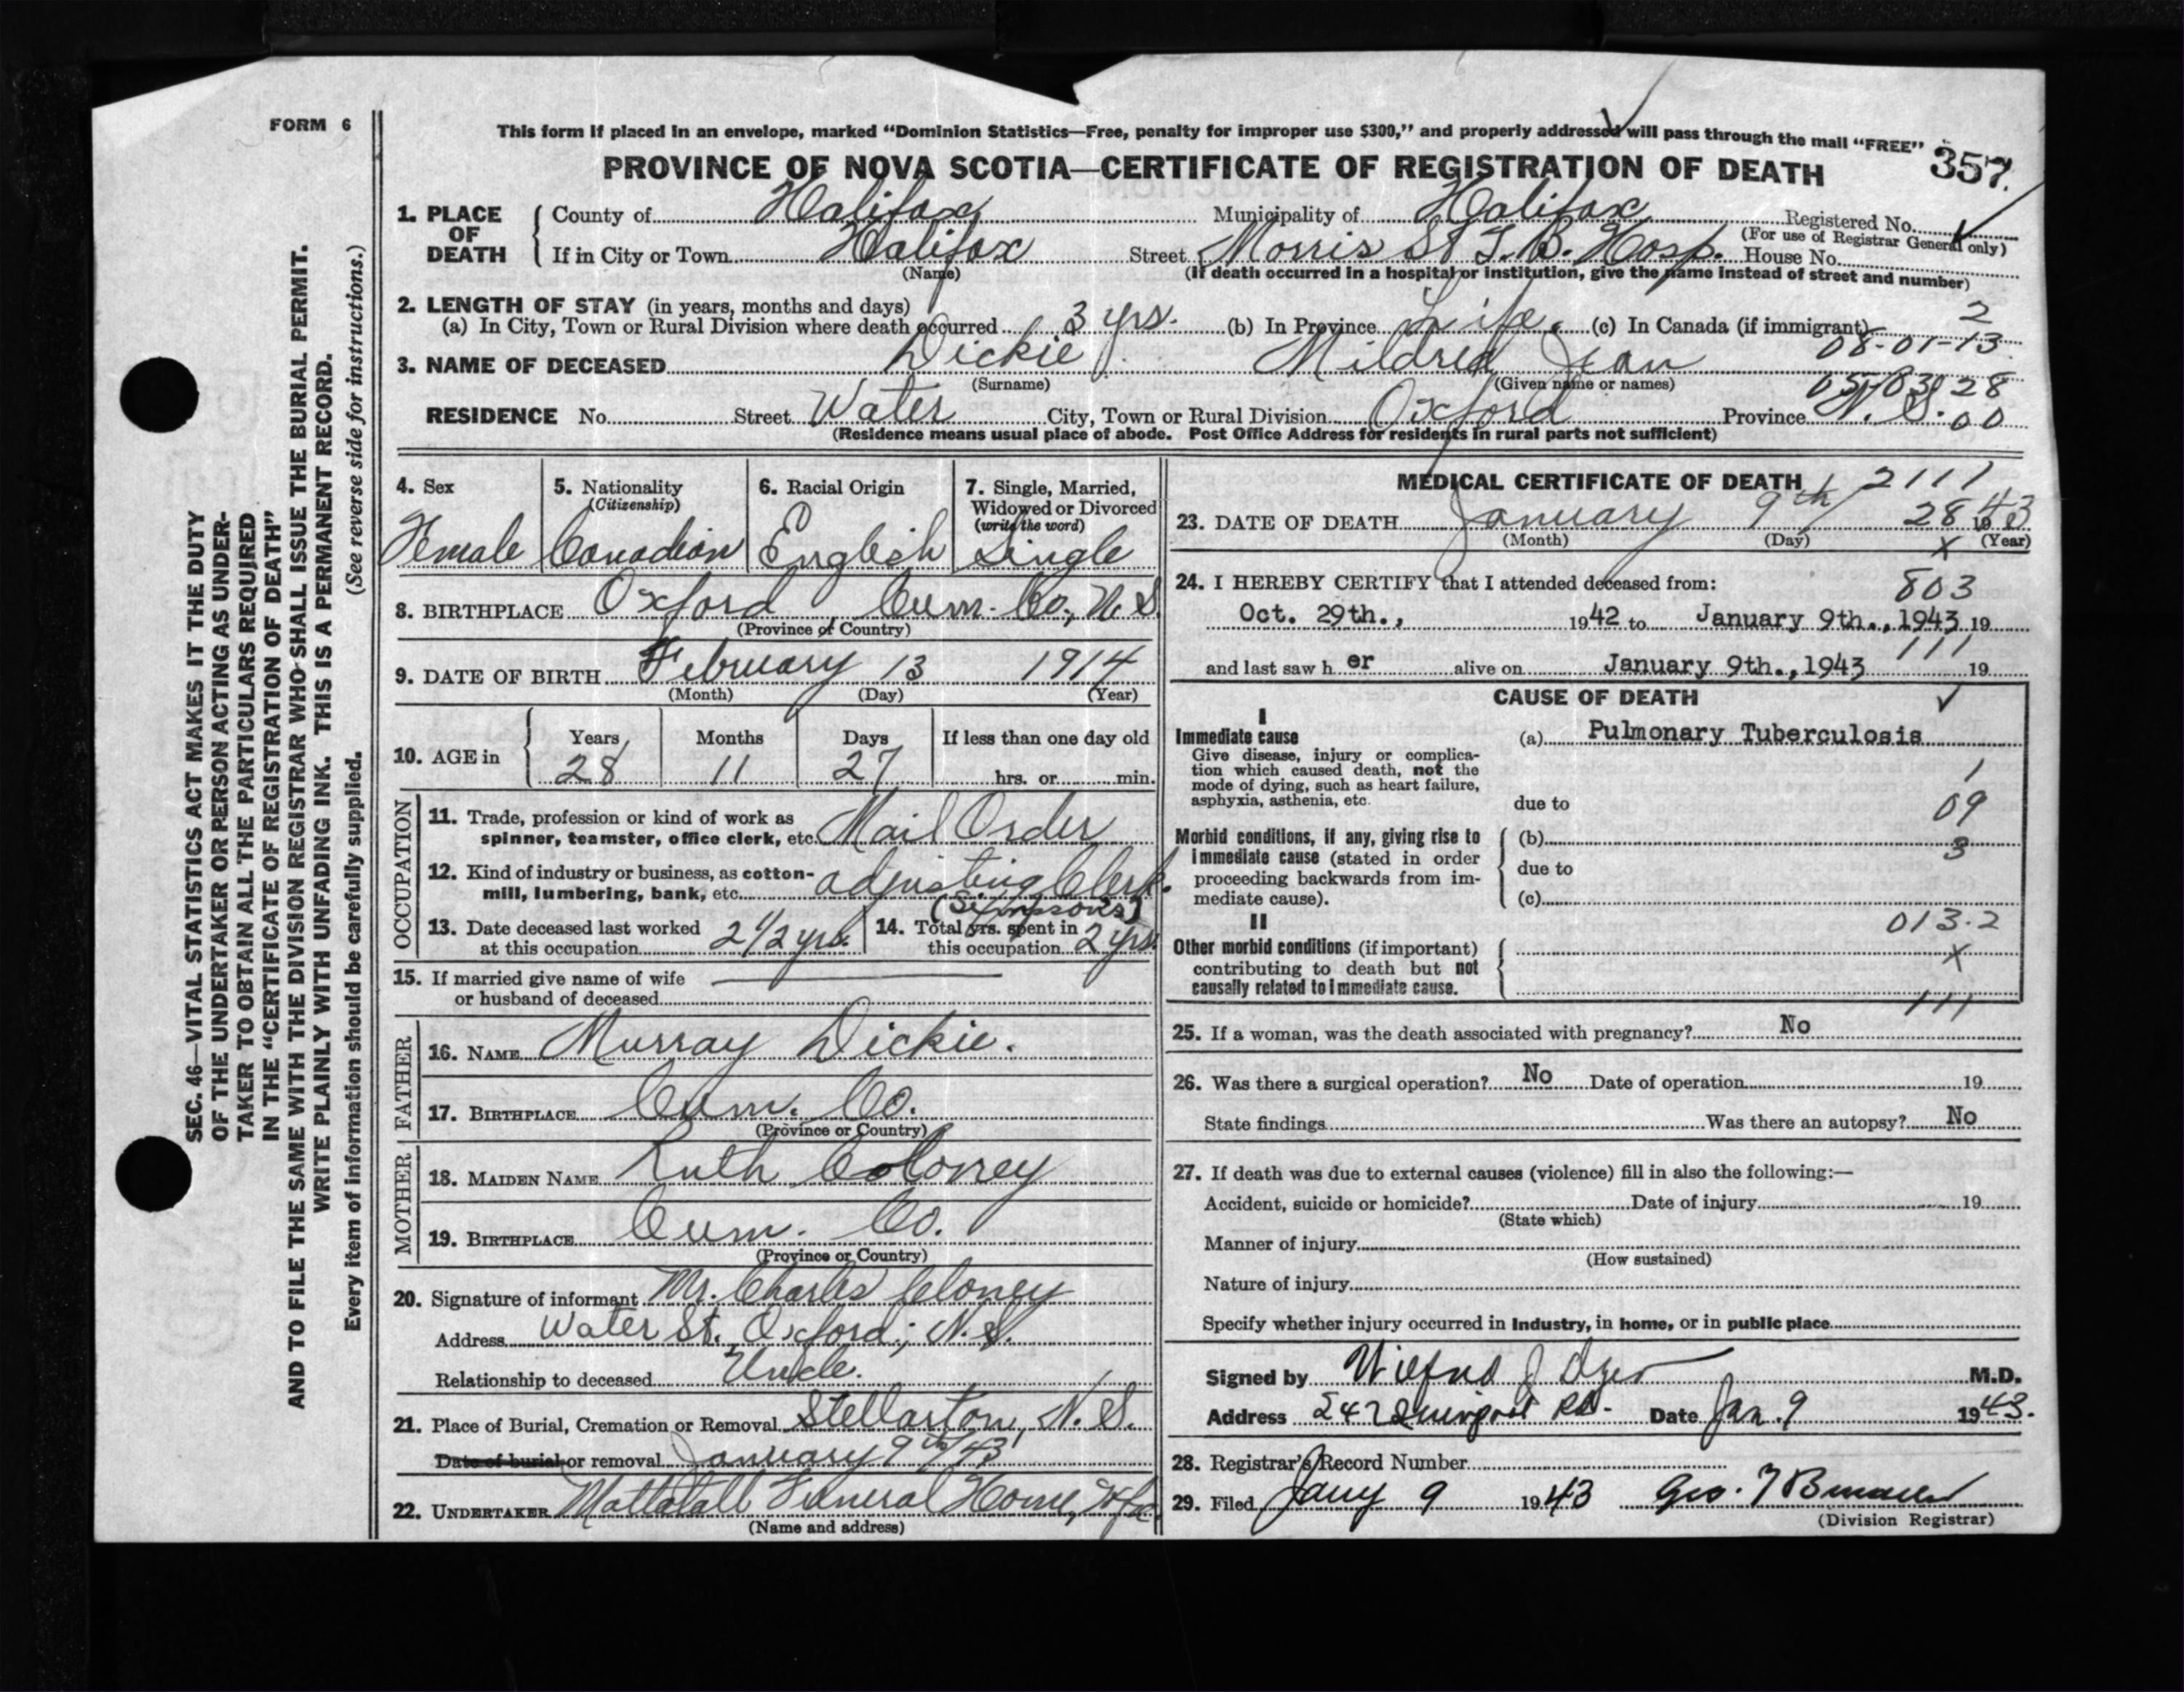 FORM 6
This form if placed in an envelope, marked "Dominion Statistics—Free, penalty for improper use $300," and properly addressed will pass through the mail "FREE"
PROVINCE OF NOVA SCOTIA—CERTIFICATE OF REGISTRATION OF DEATH 357.
1. PLACE OF DEATH
County of Halifax Municipality of Halifax Registered No.
(For use of Registrar General only)
If in City or Town Halifax Street Morris St T. B. Hosp. House No.
(Name) (If death occurred in a hospital or institution, give the name instead of street and number)
2. LENGTH OF STAY (in years, months and days) 2
(a) In City, Town or Rural Division where death occurred 3 yrs. (b) In Province Life. (c) In Canada (if immigrant)
08-01-13
3. NAME OF DECEASED Dickie Mildred Jean
(Surname) (Given name or names) 28
RESIDENCE No. Street Water City, Town or Rural Division Oxford Province N. S. 00
(Residence means usual place of abode. Post Office Address for residents in rural parts not sufficient)
4. Sex 5. Nationality (Citizenship) 6. Racial Origin 7. Single, Married, Widowed or Divorced (write the word)
Female Canadian English Single
8. BIRTHPLACE Oxford Cum. Co., N. S.
(Province of Country)
9. DATE OF BIRTH February 13 1914
(Month) (Day) (Year)
10. AGE in Years Months Days If less than one day old
28 11 27 hrs. or min.
OCCUPATION
11. Trade, profession or kind of work as spinner, teamster, office clerk, etc. Mail Order
12. Kind of industry or business, as cotton-mill, lumbering, bank, etc. adjusting Clerk.
(Simpsons)
13. Date deceased last worked at this occupation 2 1/2 yrs. 14. Total yrs. spent in this occupation 2 yrs.
15. If married give name of wife or husband of deceased
FATHER
16. NAME Murray Dickie.
17. BIRTHPLACE Cum. Co.
(Province or Country)
MOTHER
18. MAIDEN NAME Ruth Coloney
19. BIRTHPLACE Cum. Co.
(Province or Country)
20. Signature of informant Mr. Charles Cloney
Address Water St. Oxford, N. S.
Relationship to deceased Uncle.
21. Place of Burial, Cremation or Removal Stellarton, N. S.
Date of burial or removal January 9th/43
22. UNDERTAKER Mattatall Funeral Home, Hfx
(Name and address)
MEDICAL CERTIFICATE OF DEATH 2111
23. DATE OF DEATH January 9th 28 1943
(Month) (Day) X (Year)
24. I HEREBY CERTIFY that I attended deceased from: 803
Oct. 29th., 1942 to January 9th., 1943 19
111
and last saw h er alive on January 9th., 1943 19
CAUSE OF DEATH
I
Immediate cause (a) Pulmonary Tuberculosis
Give disease, injury or complication which caused death, not the mode of dying, such as heart failure, asphyxia, asthenia, etc.
1
due to 09
Morbid conditions, if any, giving rise to immediate cause (stated in order proceeding backwards from immediate cause).
(b) 3
due to
(c)
II 013.2
Other morbid conditions (if important) contributing to death but not causally related to immediate cause.
X
111
25. If a woman, was the death associated with pregnancy? No
26. Was there a surgical operation? No Date of operation 19
State findings Was there an autopsy? No
27. If death was due to external causes (violence) fill in also the following:—
Accident, suicide or homicide? Date of injury 19
(State which)
Manner of injury
(How sustained)
Nature of injury
Specify whether injury occurred in Industry, in home, or in public place
Signed by Wilfrid J Dyer M.D.
Address 247 Quinpool Rd. Date Jan. 9 1943.
28. Registrar's Record Number
29. Filed Jany 9 1943 Geo.
(Division Registrar)
SEC. 46—VITAL STATISTICS ACT MAKES IT THE DUTY
OF THE UNDERTAKER OR PERSON ACTING AS UNDER-
TAKER TO OBTAIN ALL THE PARTICULARS REQUIRED
IN THE "CERTIFICATE OF REGISTRATION OF DEATH"
AND TO FILE THE SAME WITH THE DIVISION REGISTRAR WHO SHALL ISSUE THE BURIAL PERMIT.
WRITE PLAINLY WITH UNFADING INK. THIS IS A PERMANENT RECORD.
Every item of information should be carefully supplied. (See reverse side for instructions.)